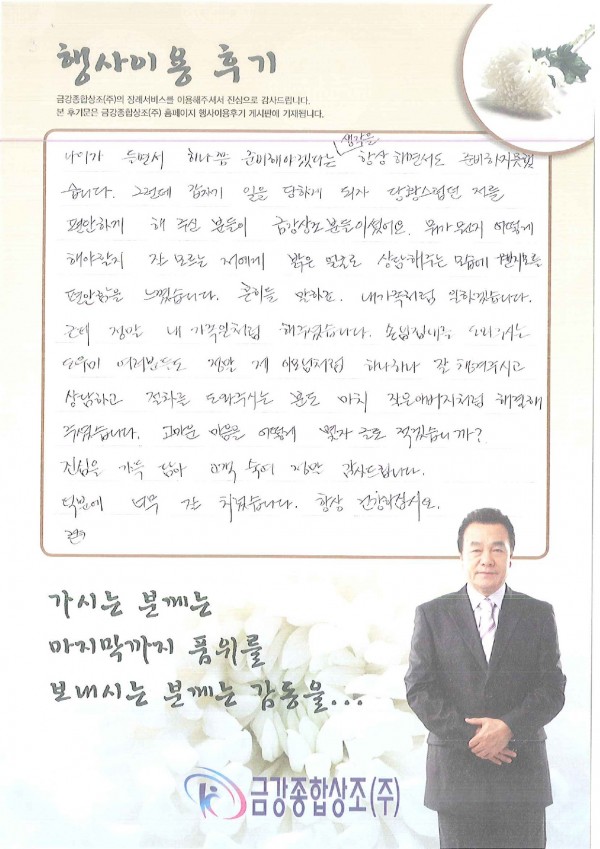 행사이용 후기
금강종합상조(주)의 장례서비스를 이용해주셔서 진심으로 감사드립니다.
본 후기문은 금강종합상조(주) 홈페이지 행사이용후기 게시판에 기재됩니다.
생각을
나이가 들면서 하나쯤 준비해야겠다는 항상 하면서도 준비하지못했
습니다. 그런데 갑자기 일을 당하게 되자 당황스럽던 저를
편안하게 해 주신 분들이 금강상조분들이셨어요. 뭐가 뭔지 어떻게
해야할지 잘 모르는 저에게 밝은 얼굴로 상담해주는 모습에
편안함을 느꼈습니다. 흔히들 말하죠. 내가족처럼 일하겠습니다.
근데 정말 내 가족일처럼 해주셨습니다. 손님접내용
도우미 여러분들도 정말 제 이모님처럼 하나하나 잘 해주시고
상담하고 절차를 도와주시는 분도 마치 작은아버지처럼 해결해
주셨습니다. 고마운 마음을 어떻게 몇자 글로 적겠습니까?
진심을 가득 담아 고객 숙여 정말 감사드립니다.
덕분에 너무 잘 치렀습니다. 항상 건강하십시오.
가시는 분께는
마지막까지 품위를
보내시는 분께는 감동을...
금강종합상조(주)